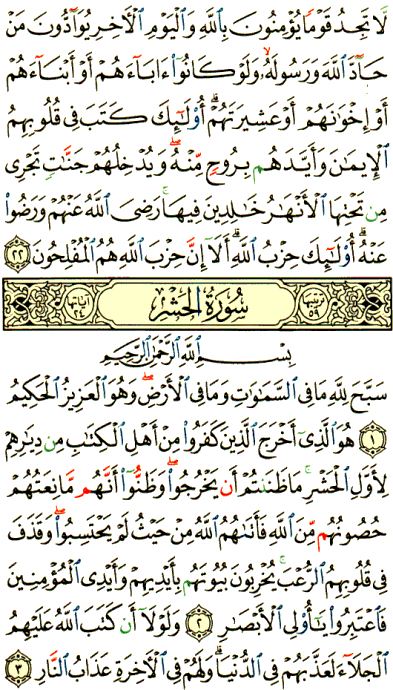 لَّا تَجِدُ قَوْمًا يُؤْمِنُونَ بِٱللَّهِ وَٱلْيَوْمِ ٱلْآخِرِ يُوَآدُّونَ مَنْ
حَآدَّ ٱللَّهَ وَرَسُولَهُۥ وَلَوْ كَانُوٓا۟ ءَابَآءَهُمْ أَوْ أَبْنَآءَهُمْ
أَوْ إِخْوَٰنَهُمْ أَوْ عَشِيرَتَهُمْ ۚ أُو۟لَٰٓئِكَ كَتَبَ فِى قُلُوبِهِمُ
ٱلْإِيمَٰنَ وَأَيَّدَهُم بِرُوحٍ مِّنْهُ ۖ وَيُدْخِلُهُمْ جَنَّٰتٍ تَجْرِى
مِن تَحْتِهَا ٱلْأَنْهَٰرُ خَٰلِدِينَ فِيهَا ۚ رَضِىَ ٱللَّهُ عَنْهُمْ وَرَضُوا۟
عَنْهُ ۚ أُو۟لَٰٓئِكَ حِزْبُ ٱللَّهِ ۚ أَلَآ إِنَّ حِزْبَ ٱللَّهِ هُمُ ٱلْمُفْلِحُونَ ٢٢
ترتيبها ٥٩ سُورَةُ الحَشْرِ آياتها ٢٤
بِسْمِ ٱللَّهِ ٱلرَّحْمَٰنِ ٱلرَّحِيمِ
سَبَّحَ لِلَّهِ مَا فِى ٱلسَّمَٰوَٰتِ وَمَا فِى ٱلْأَرْضِ ۖ وَهُوَ ٱلْعَزِيزُ ٱلْحَكِيمُ
١ هُوَ ٱلَّذِىٓ أَخْرَجَ ٱلَّذِينَ كَفَرُوا۟ مِنْ أَهْلِ ٱلْكِتَٰبِ مِن دِيَٰرِهِمْ
لِأَوَّلِ ٱلْحَشْرِ ۚ مَا ظَنَنتُمْ أَن يَخْرُجُوا۟ ۖ وَظَنُّوٓا۟ أَنَّهُم مَّانِعَتُهُمْ
حُصُونُهُم مِّنَ ٱللَّهِ فَأَتَىٰهُمُ ٱللَّهُ مِنْ حَيْثُ لَمْ يَحْتَسِبُوا۟ ۖ وَقَذَفَ
فِى قُلُوبِهِمُ ٱلرُّعْبَ ۚ يُخْرِبُونَ بُيُوتَهُم بِأَيْدِيهِمْ وَأَيْدِى ٱلْمُؤْمِنِينَ
فَٱعْتَبِرُوا۟ يَٰٓأُو۟لِى ٱلْأَبْصَٰرِ ٢ وَلَوْلَآ أَن كَتَبَ ٱللَّهُ عَلَيْهِمُ
ٱلْجَلَآءَ لَعَذَّبَهُمْ فِى ٱلدُّنْيَا ۖ وَلَهُمْ فِى ٱلْآخِرَةِ عَذَابُ ٱلنَّارِ ٣